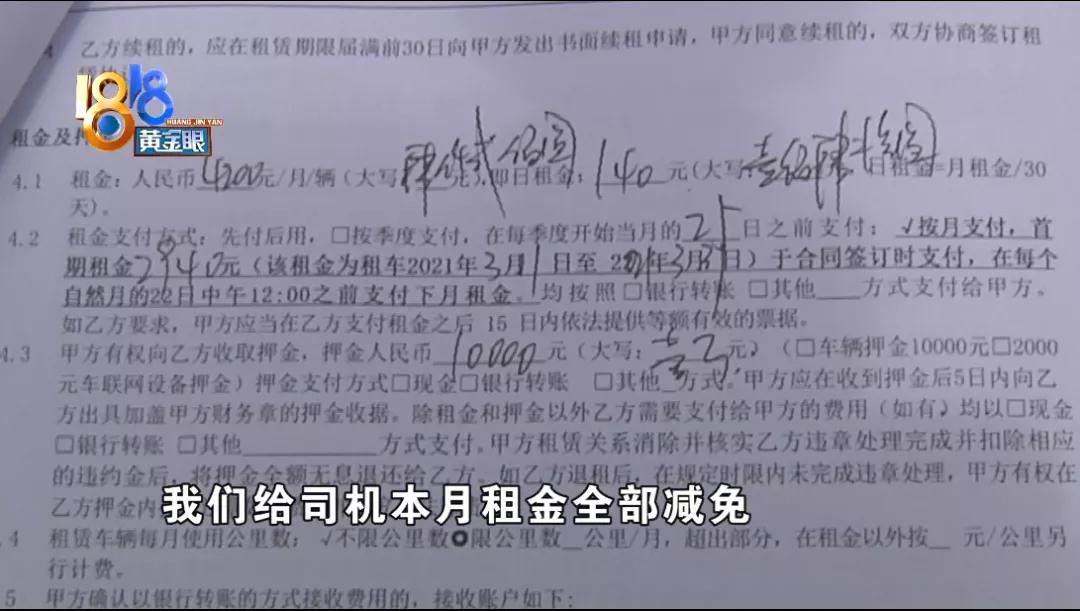 4 乙方续租的，应在租赁期限届满前30日向甲方发出书面续租申请，甲方同意续租的，双方协商签订租
1818
HUANG JIN YAN
黄金眼
租金及押
4.1 租金：人民币4200元/月/辆（大写 肆仟贰佰圆 元），即日租金：140元（大写 日租金=月租金/30
天）。
4.2 租金支付方式：先付后用，□按季度支付，在每季度开始当月的21日之前支付；√按月支付，首
期租金2940元（该租金为租车2021年3月11日至2021年3月31日）于合同签订时支付，在每个
自然月的22日中午12:00之前支付下月租金。均按照□银行转账 □其他____方式支付给甲方。
如乙方要求，甲方应当在乙方支付租金之后 15 日内依法提供等额有效的票据。
4.3 甲方有权向乙方收取押金，押金人民币10000元（大写：壹万元）（□车辆押金10000元□2000
元车联网设备押金）押金支付方式□现金□银行转账 □其他__方式。甲方应在收到押金后5日内向乙
方出具加盖甲方财务章的押金收据。除租金和押金以外乙方需要支付给甲方的费用（如有）均以□现金
□银行转账 □其他__________方式支付。甲方租赁关系消除并核实乙方违章处理完成并扣除相应
的违约金后，将押金全额无息退还给乙方。如乙方退租后，在规定时限内未完成违章处理，甲方有权在
乙方押金内
我们给司机本月租金全部减免
.4 租赁车辆每月使用公里数：√不限公里数 限公里数__公里/月，超出部分，在租金以外按__ 元/公里另
行计费。
5 甲方确认以银行转账的方式接收费用的，接收账户如下：